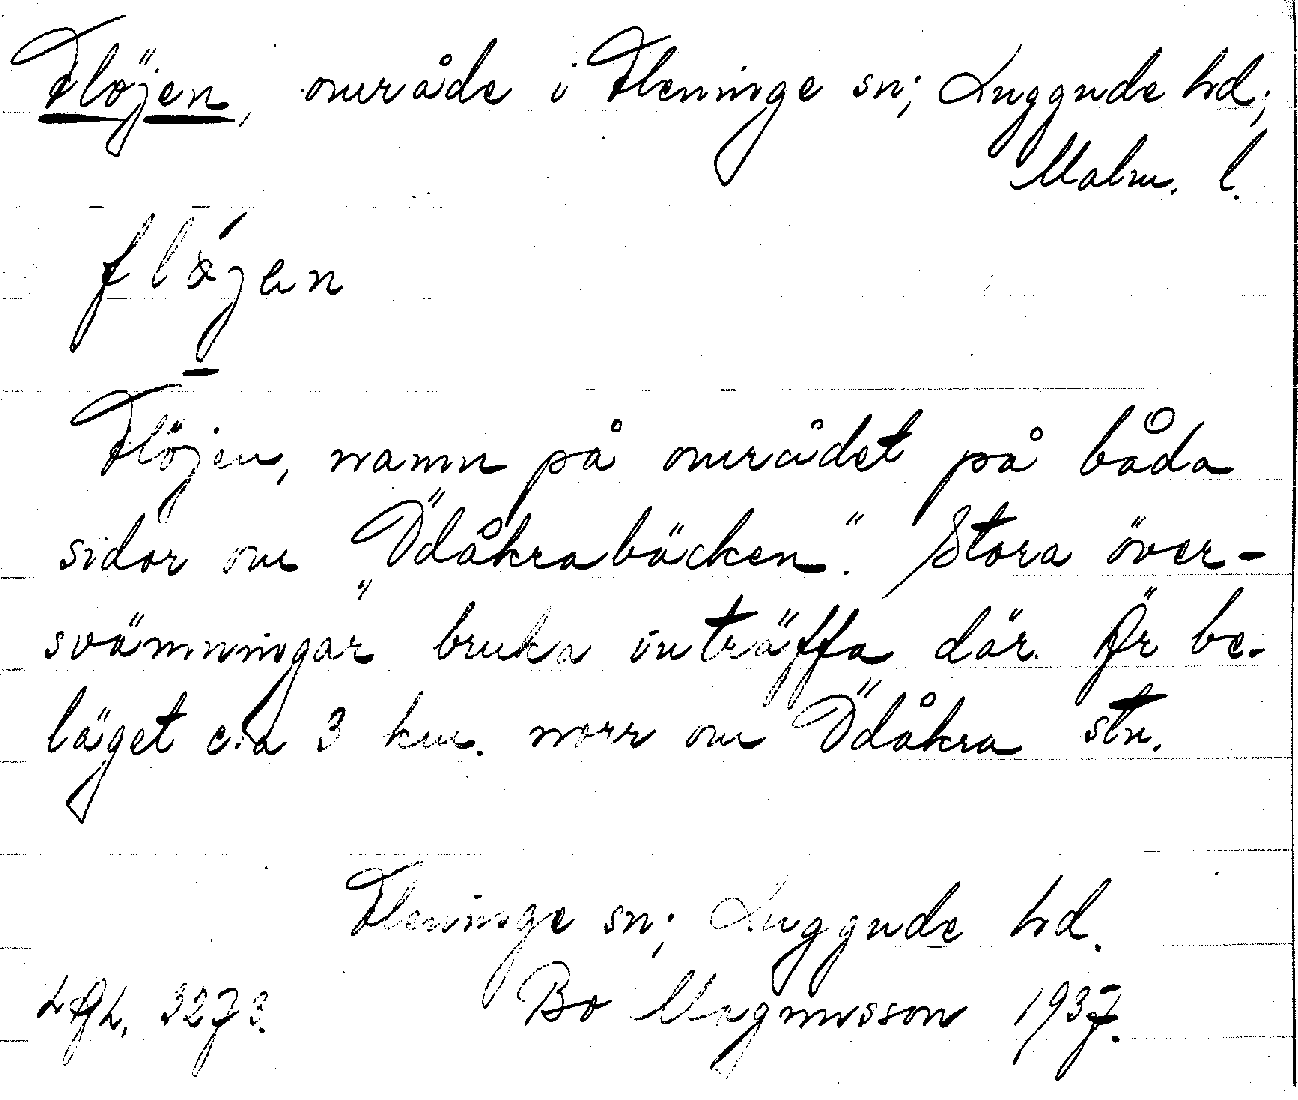 Flöjen, område i Fleninge sn; Luggude hd;
Malm. l.
fløjen
Flöjen, namn på området på båda
sidor om „Ödåkrabäcken". Stora över-
svämningar bruka inträffa där. Är be-
läget c:a 3 km. norr om Ödåkra stn.
Fleninge sn; Luggude hd.
3273. Bo Magnusson 1937.